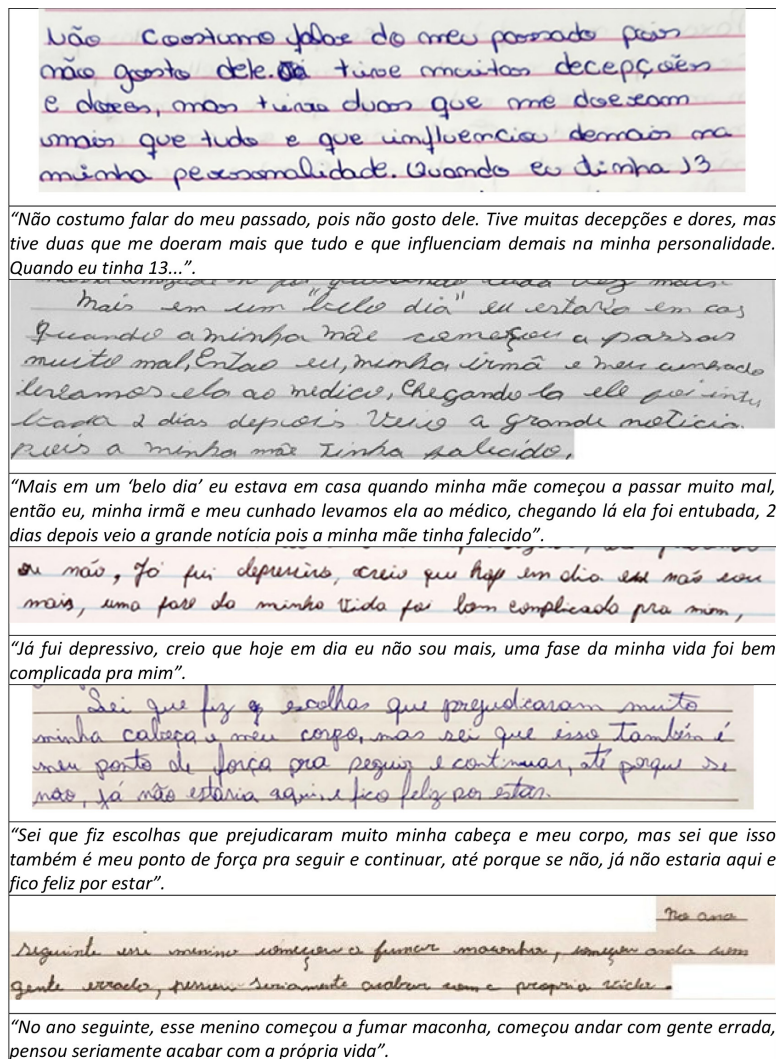 Não costumo falar do meu passado pois
não gosto dele. tive muitas decepções
e dores, mas tive duas que me doeram
mais que tudo e que influencia demais na
minha personalidade. Quando eu tinha 13
"Não costumo falar do meu passado, pois não gosto dele. Tive muitas decepções e dores, mas
tive duas que me doeram mais que tudo e que influenciam demais na minha personalidade.
Quando eu tinha 13...".
Mais em um "belo dia" eu estava em cas
quando a minha mãe começou a passar
muito mal, Entao eu, minha irmã e meu cunhado
levamos ela ao medico, Chegando la ele foi intu
bada 2 dias depois Veio a grande noticia
pois a minha mãe Tinha falecido.
"Mais em um 'belo dia' eu estava em casa quando minha mãe começou a passar muito mal,
então eu, minha irmã e meu cunhado levamos ela ao médico, chegando lá ela foi entubada, 2
dias depois veio a grande notícia pois a minha mãe tinha falecido".
ou não, Já fui depressivo, creio que hoje em dia não sou
mais, uma fase da minha vida foi bem complicada pra mim,
"Já fui depressivo, creio que hoje em dia eu não sou mais, uma fase da minha vida foi bem
complicada pra mim".
Sei que fiz escolhas que prejudicaram muito
minha cabeça e meu corpo, mas sei que isso também é
meu ponto de força pra seguir e continuar, até porque se
não, já não estaria aqui, e fico feliz por estar.
"Sei que fiz escolhas que prejudicaram muito minha cabeça e meu corpo, mas sei que isso
também é meu ponto de força pra seguir e continuar, até porque se não, já não estaria aqui e
fico feliz por estar".
No ano
seguinte esse menino começou a fumar maconha, começou anda com
gente errada, pensou seriamente acabar com a propria vida.
"No ano seguinte, esse menino começou a fumar maconha, começou andar com gente errada,
pensou seriamente acabar com a própria vida".